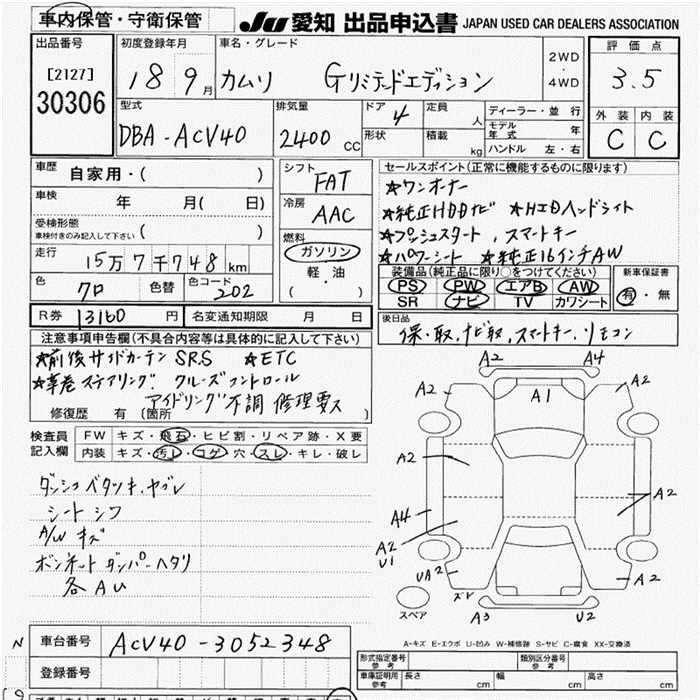 車内保管・守衛保管
JU 愛知 出品申込書 JAPAN USED CAR DEALERS ASSOCIATION
出品番号 初度登録年月 車名・グレード 評価点
[2127] 18 9月 カムリ Gリミテッドエディション 2WD・4WD 3.5
30306
型式 排気量 ドア 定員 ディーラー・並行 外装 内装
DBA-ACV40 2400 CC 4 人 モデル年式 年 C C
形状 積載 kg ハンドル 左・右
車歴 自家用・( )
シフト FAT
セールスポイント(正常に機能するものに限ります)
★ワンオーナー
車検 年 月( 日)
冷房 AAC
★純正HDDナビ ★HIDヘッドライト
受検形態
車検付きのみ記入して下さい ( )
★プッシュスタート、スマートキー
燃料 ガソリン
★パワーシート ★純正16インチAW
走行 15万7千748km
軽・油
( )
装備品(純正品に限り○をつけてください) 新車保証書
PS PW エアB AW 有・無
SR ナビ TV カワシート
色 クロ 色替 色コード 202
R券 13160円 名変通知期限 月 日
後日品 保・取、ナビ取、スマートキー、リモコン
注意事項申告欄(不具合内容等は具体的に記入して下さい)
★前後サイドカーテンSRS ★ETC
★革巻ステアリング クルーズコントロール
アイドリング不調 修理要ス
修復歴 有 (箇所 )
検査員記入欄 FW キズ・飛石・ヒビ割・リペア跡・X要
内装 キズ・汚レ・コゲ・穴・スレ・キレ・破レ
ダッシュベタツキ、ヤブレ
シートシワ
A/Wキズ
ボンネットダンパーヘタリ
各AU
A2 A4
A2 A1 A2
A2
A2
A4
A2
U1
UA2 A2
ズレ
スペア A3 U2
A-キズ E-エクボ U-凹み W-補修跡 S-サビ C-腐食 XX-交換済
N 車台番号 ACV40-3052348
登録番号
形式指定番号 参考 類別区分番号 参考
車庫証明用 参考 長さ cm 幅 cm 高さ cm